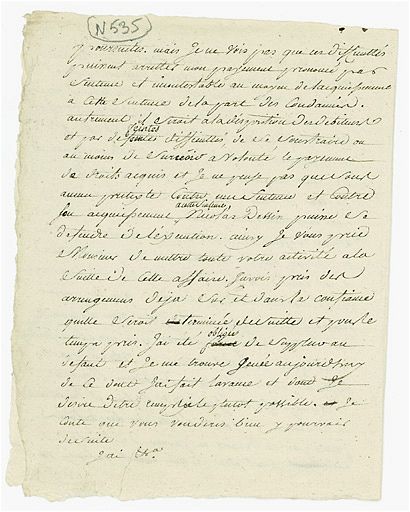 N 535
mais je ne vois pas que ces difficultés
puissent arretter mon payement prononcé par
Sentence et incontestable au moyen de lacquiessement
a cette Sentence de la part des Condamnés.
autrement il Seroit a la disposition des debiteurs
et par de feintes difficultés de se Soustraire ou
au moins de a volonté le payement
de droits acquis et je ne pense pas que Sous
aucun pretexte Contre une Sentence et Contre
Son acquiessement anterieurement, Nicolas puisse Se
defendre de lexecution. ainsy je vous prie
Monsieur de mettre toute votre activité a la
Suitte de Cette affaire. J'avois pris des
arrangemens deja Sur et dans la confiance
quelle Seroit terminée de suitte et pour le
tems pris. J'ai été obligé de Suppleer au
defaut et je me trouve Gené aujourdhuy
de Ce dont J'ai fait lavance et dont
le plutot possible. Je
Conte que vous voudrez bien y pourvoir
de Suite
J'ai &ca